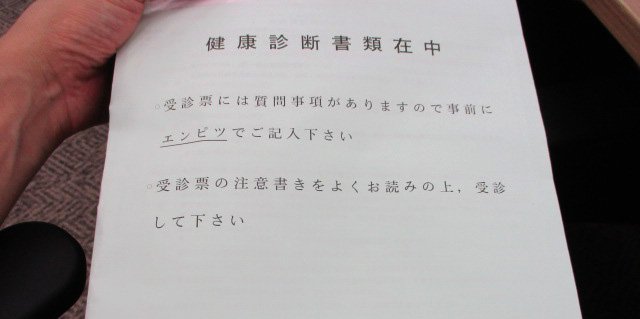 健康診断書類在中
○受診票には質問事項がありますので事前に
エンピツでご記入下さい
○受診票の注意書きをよくお読みの上，受診
して下さい